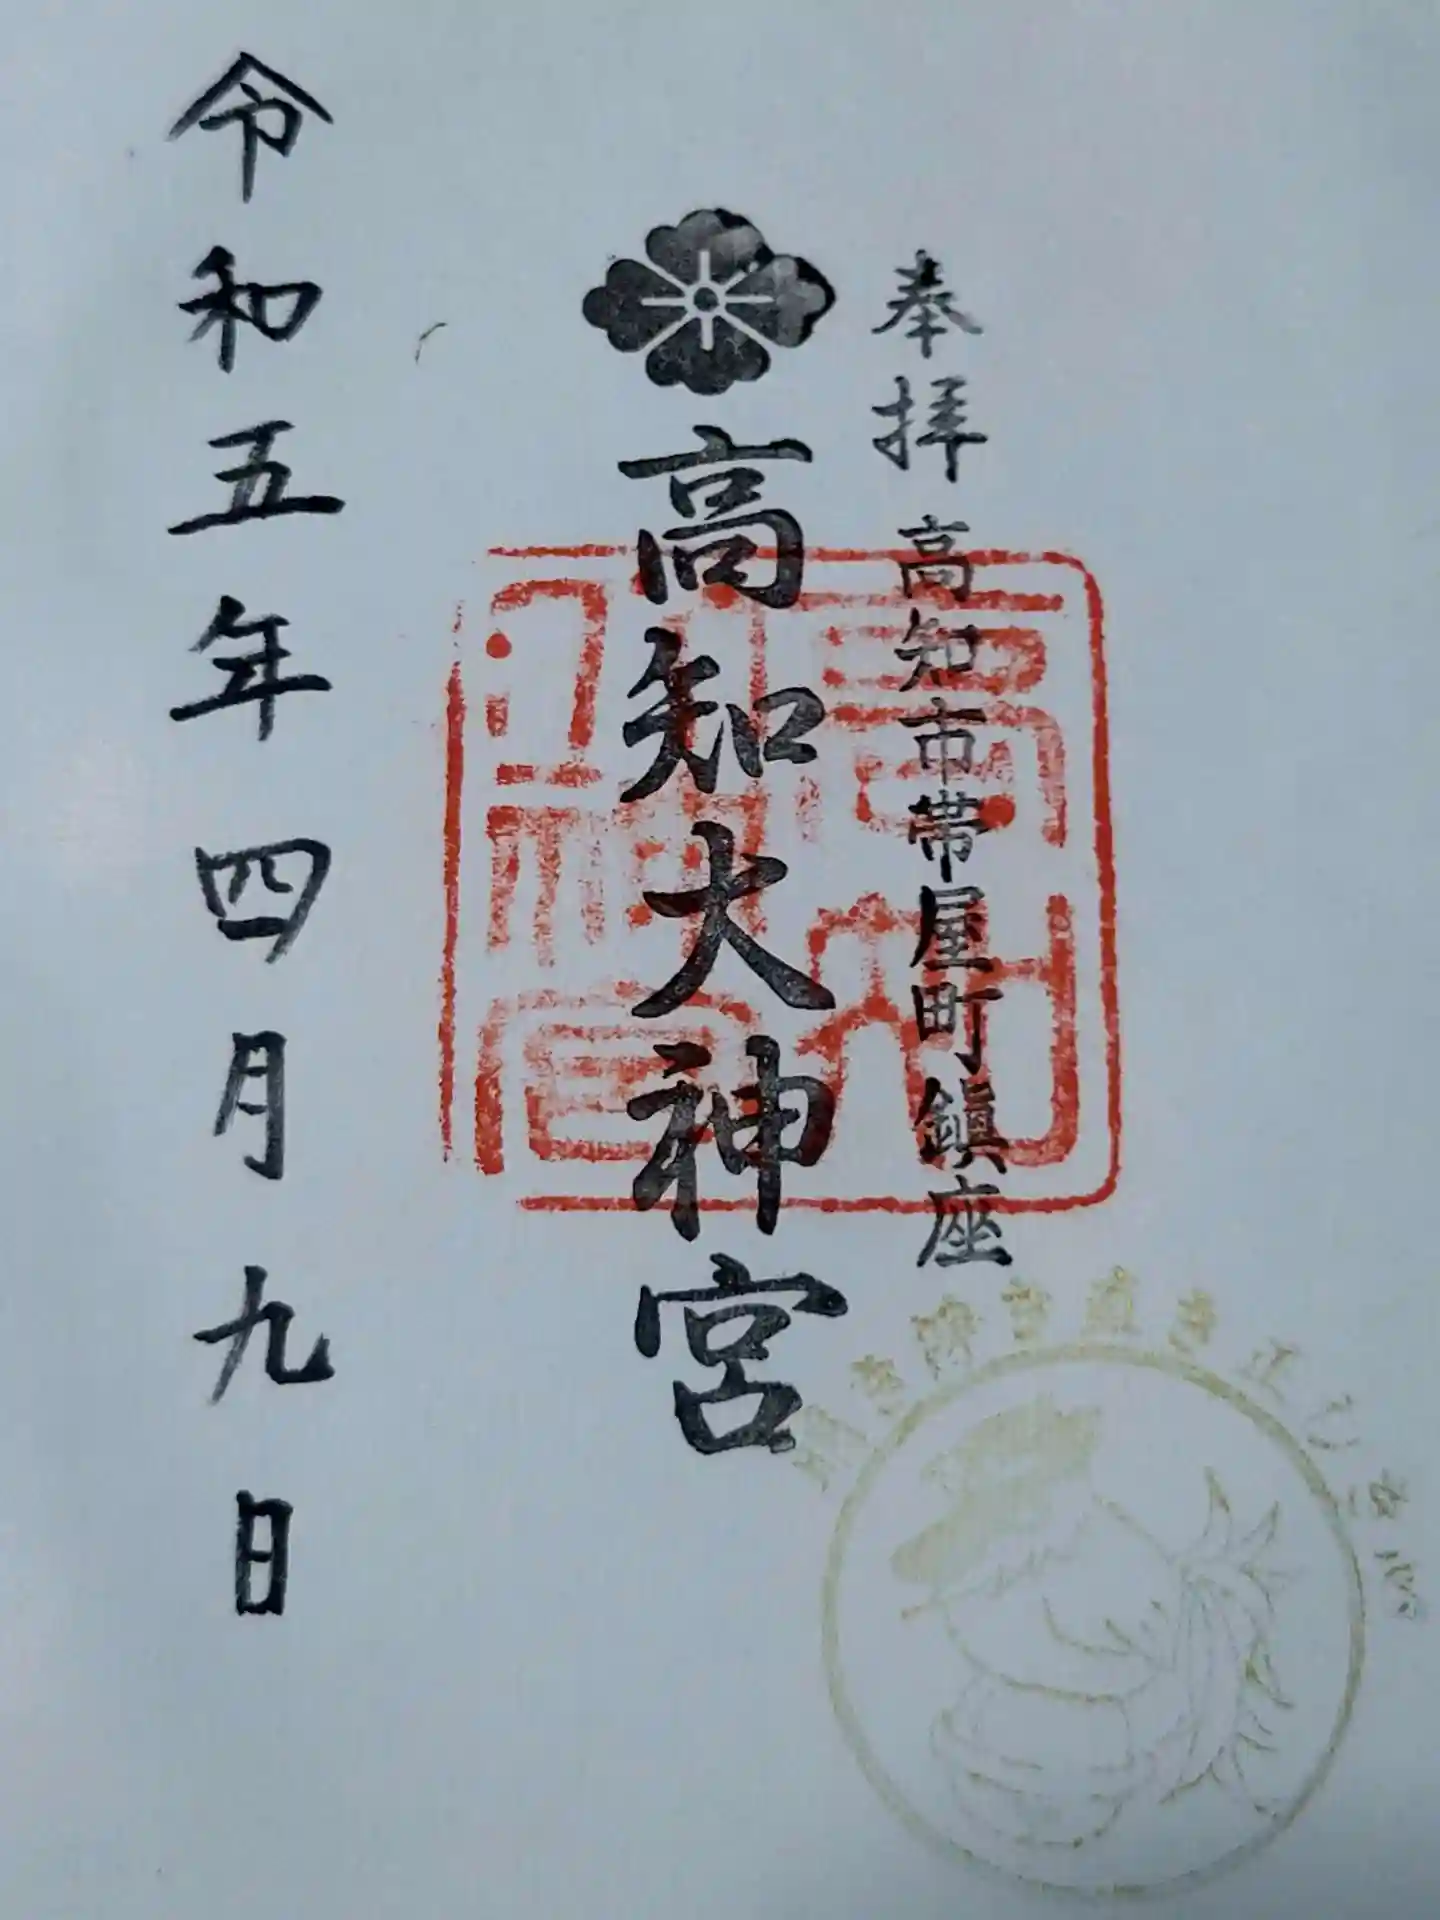 奉拝 高知市帯屋町鎮座
高知大神宮
令和五年四月九日